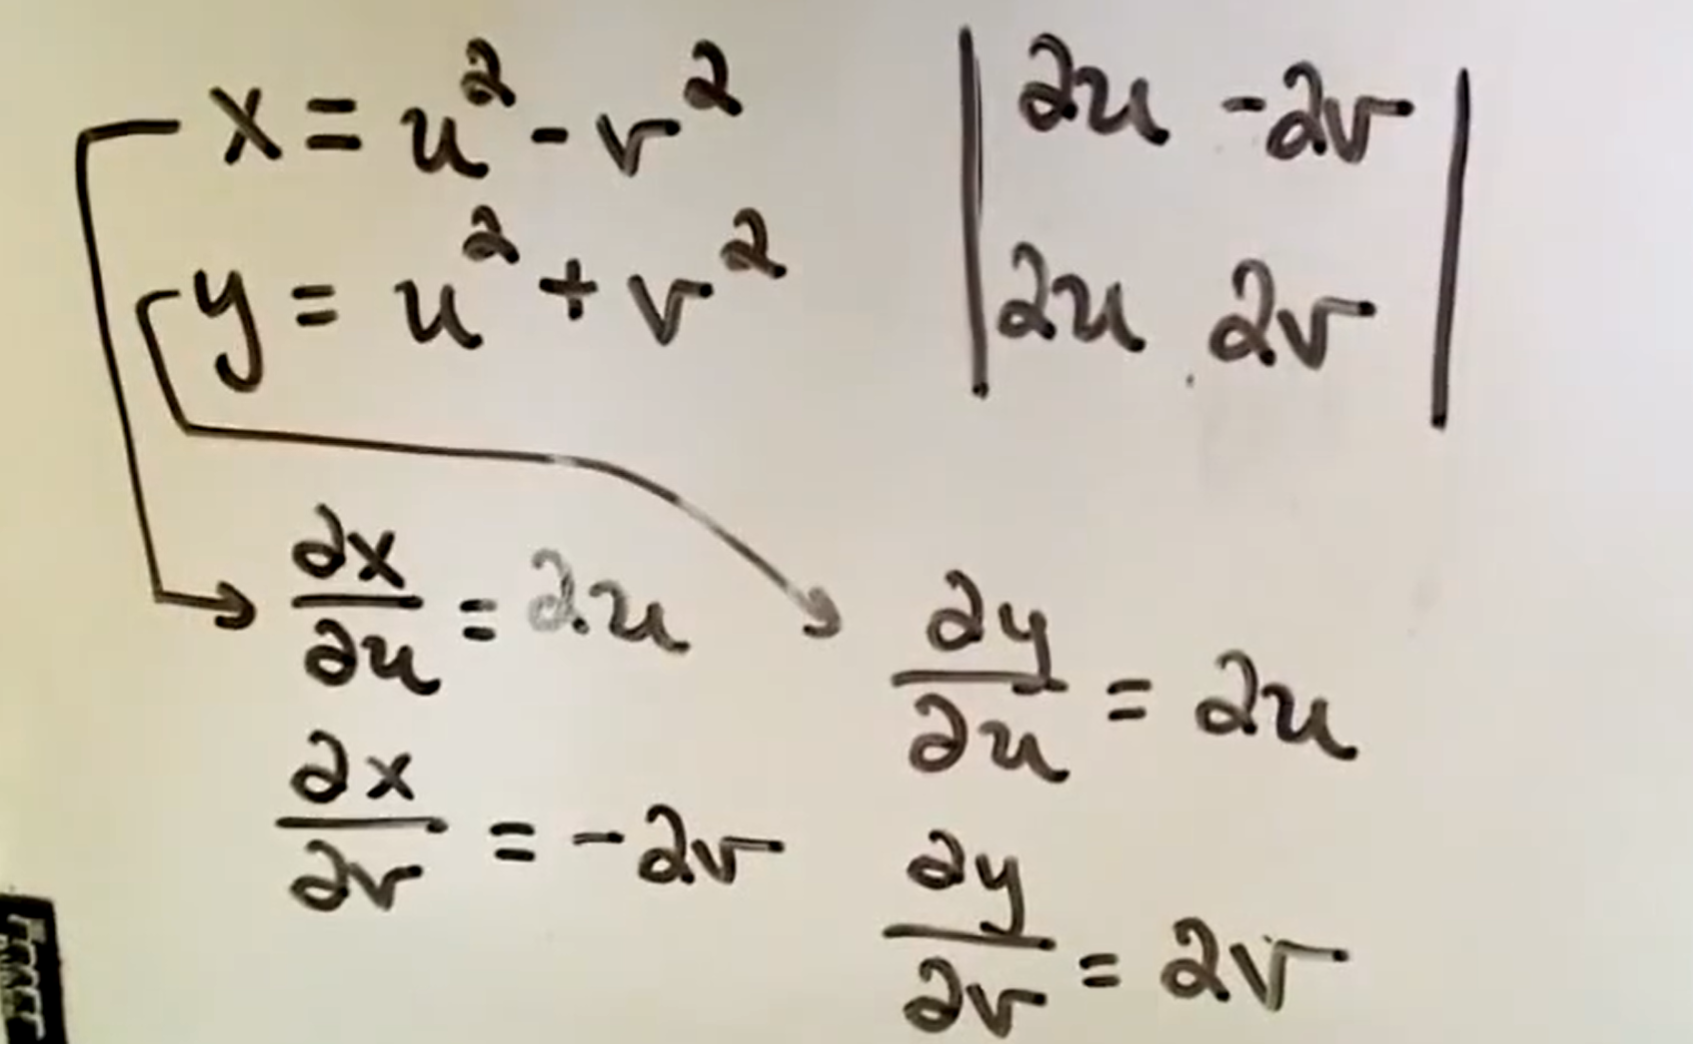 x = u² - v²
y = u² + v²
| 2u -2v |
| 2u 2v |
∂x/∂u = 2u
∂x/∂v = -2v
∂y/∂u = 2u
∂y/∂v = 2v